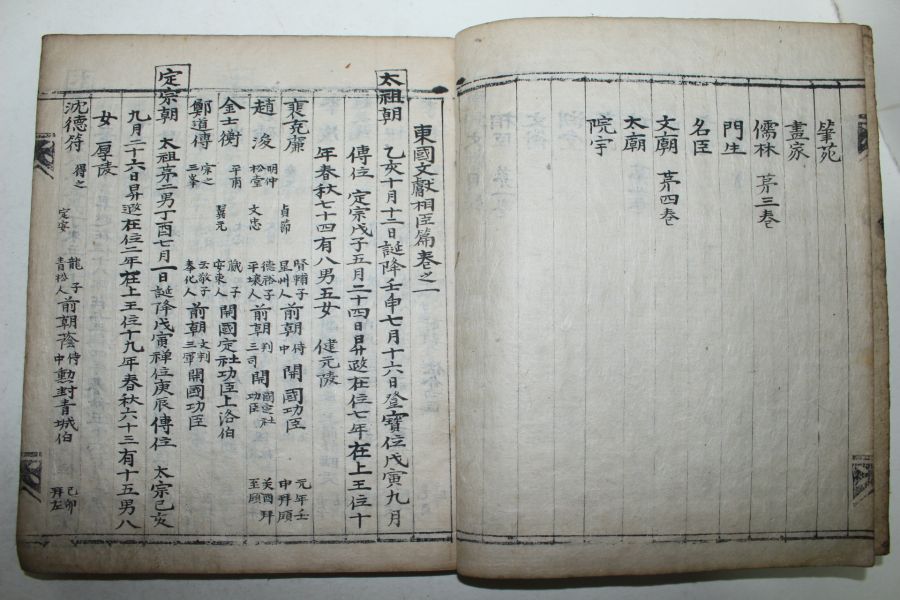 筆苑
畫家
儒林 苐三卷
門生
名臣
文廟 苐四卷
太廟
院宇
東國文獻相臣篇卷之一
太祖朝 乙亥十月十一日誕降壬申七月十六日登寶位戊寅九月
傳位 定宗戊子五月二十四日昇遐在位七年在上王位十
年春秋七十四有八男五女 健元陵
裵克廉 貞節 星州人 前朝侍中 開國功臣 元年壬申拜領
趙浚 明仲 松堂 文忠 德裕子 平壤人 前朝判三司 開國定社功臣 癸酉拜至領
金士衡 平甫 翼元 蕆子 安東人 開國定社功臣上洛伯
鄭道傳 宗之 三峯 云敬子 奉化人 前朝文判三軍 開國功臣
定宗朝 太祖苐二男丁酉七月一日誕降戊寅禅位庚辰傳位 太宗己亥
九月二十六日昇遐在位二年在上王位十九年春秋六十三有十五男八
女 厚陵
沈德符 得之 定安 龍子 青松人 前朝蔭侍中勳封青城伯 己卯拜左